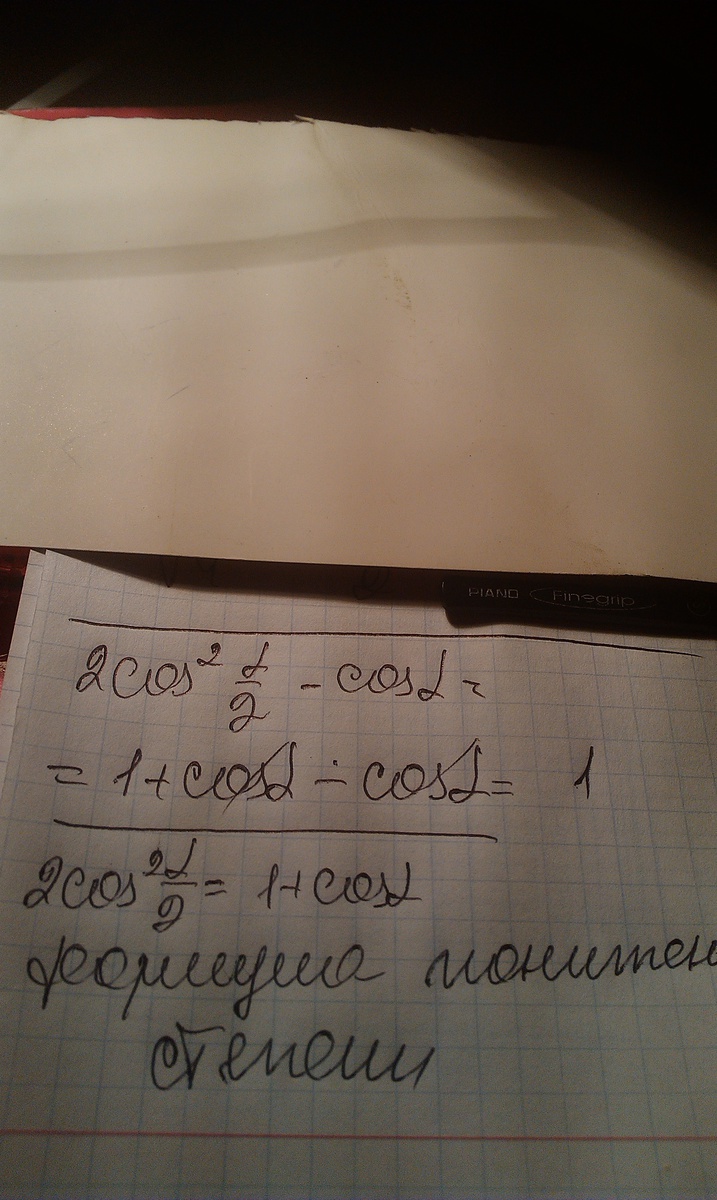 PIANO Finegrip
2cos² α/2 - cosα =
= 1 + cosα - cosα = 1
2cos² α/2 = 1 + cosα
формула понижен
степени